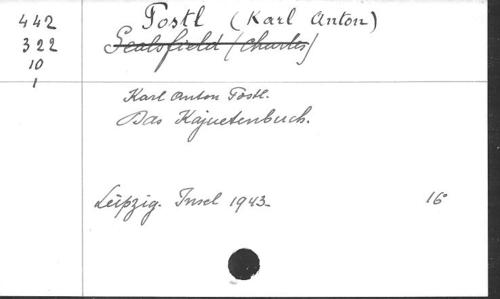 442
322
10
1
Postl (Karl Anton)
Sealsfield (Charles)
Karl Anton Postl.
Das Kajuetenbuch.
Leipzig. Insel 1943 16°